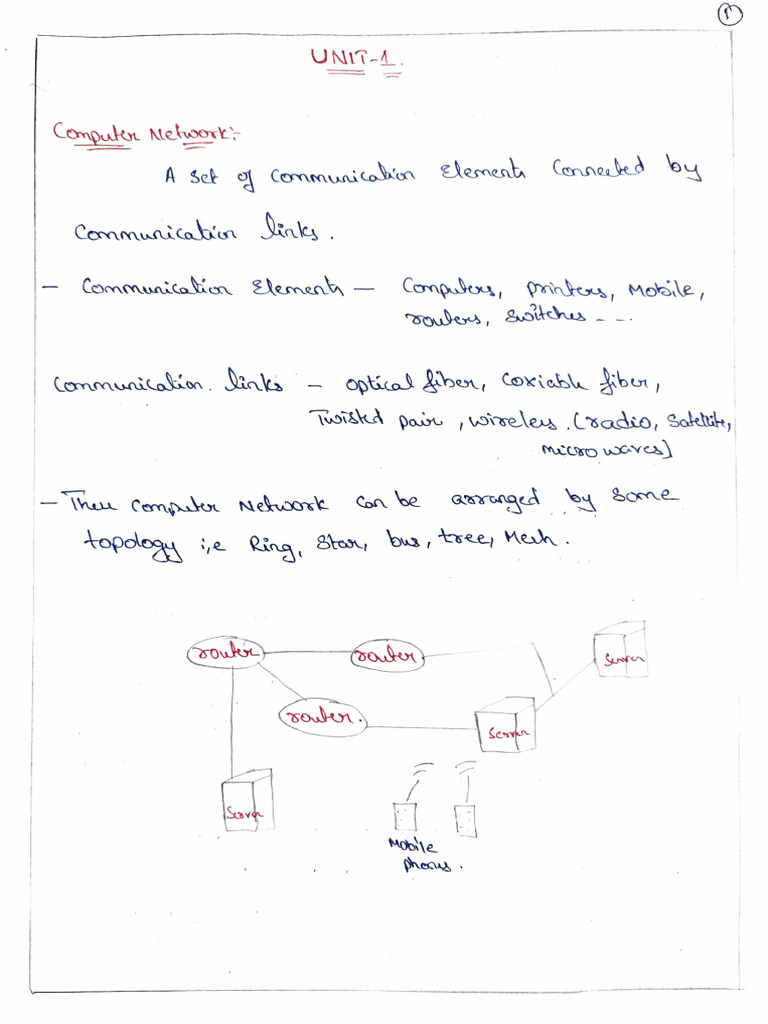 1
UNIT-1.
Computer Network:-
A set of communication Elements connected by
communication links.
- Communication Elements - Computers, printers, Mobile,
routers, switches ---.
Communication links - optical fiber, coxiable fiber,
Twisted pair, wireless. (radio, satellite,
micro waves]
- Then computer Network can be arranged by some
topology i,e Ring, Star, bus, tree, Mesh.
router
router
server
router.
server
server
Mobile
phones.